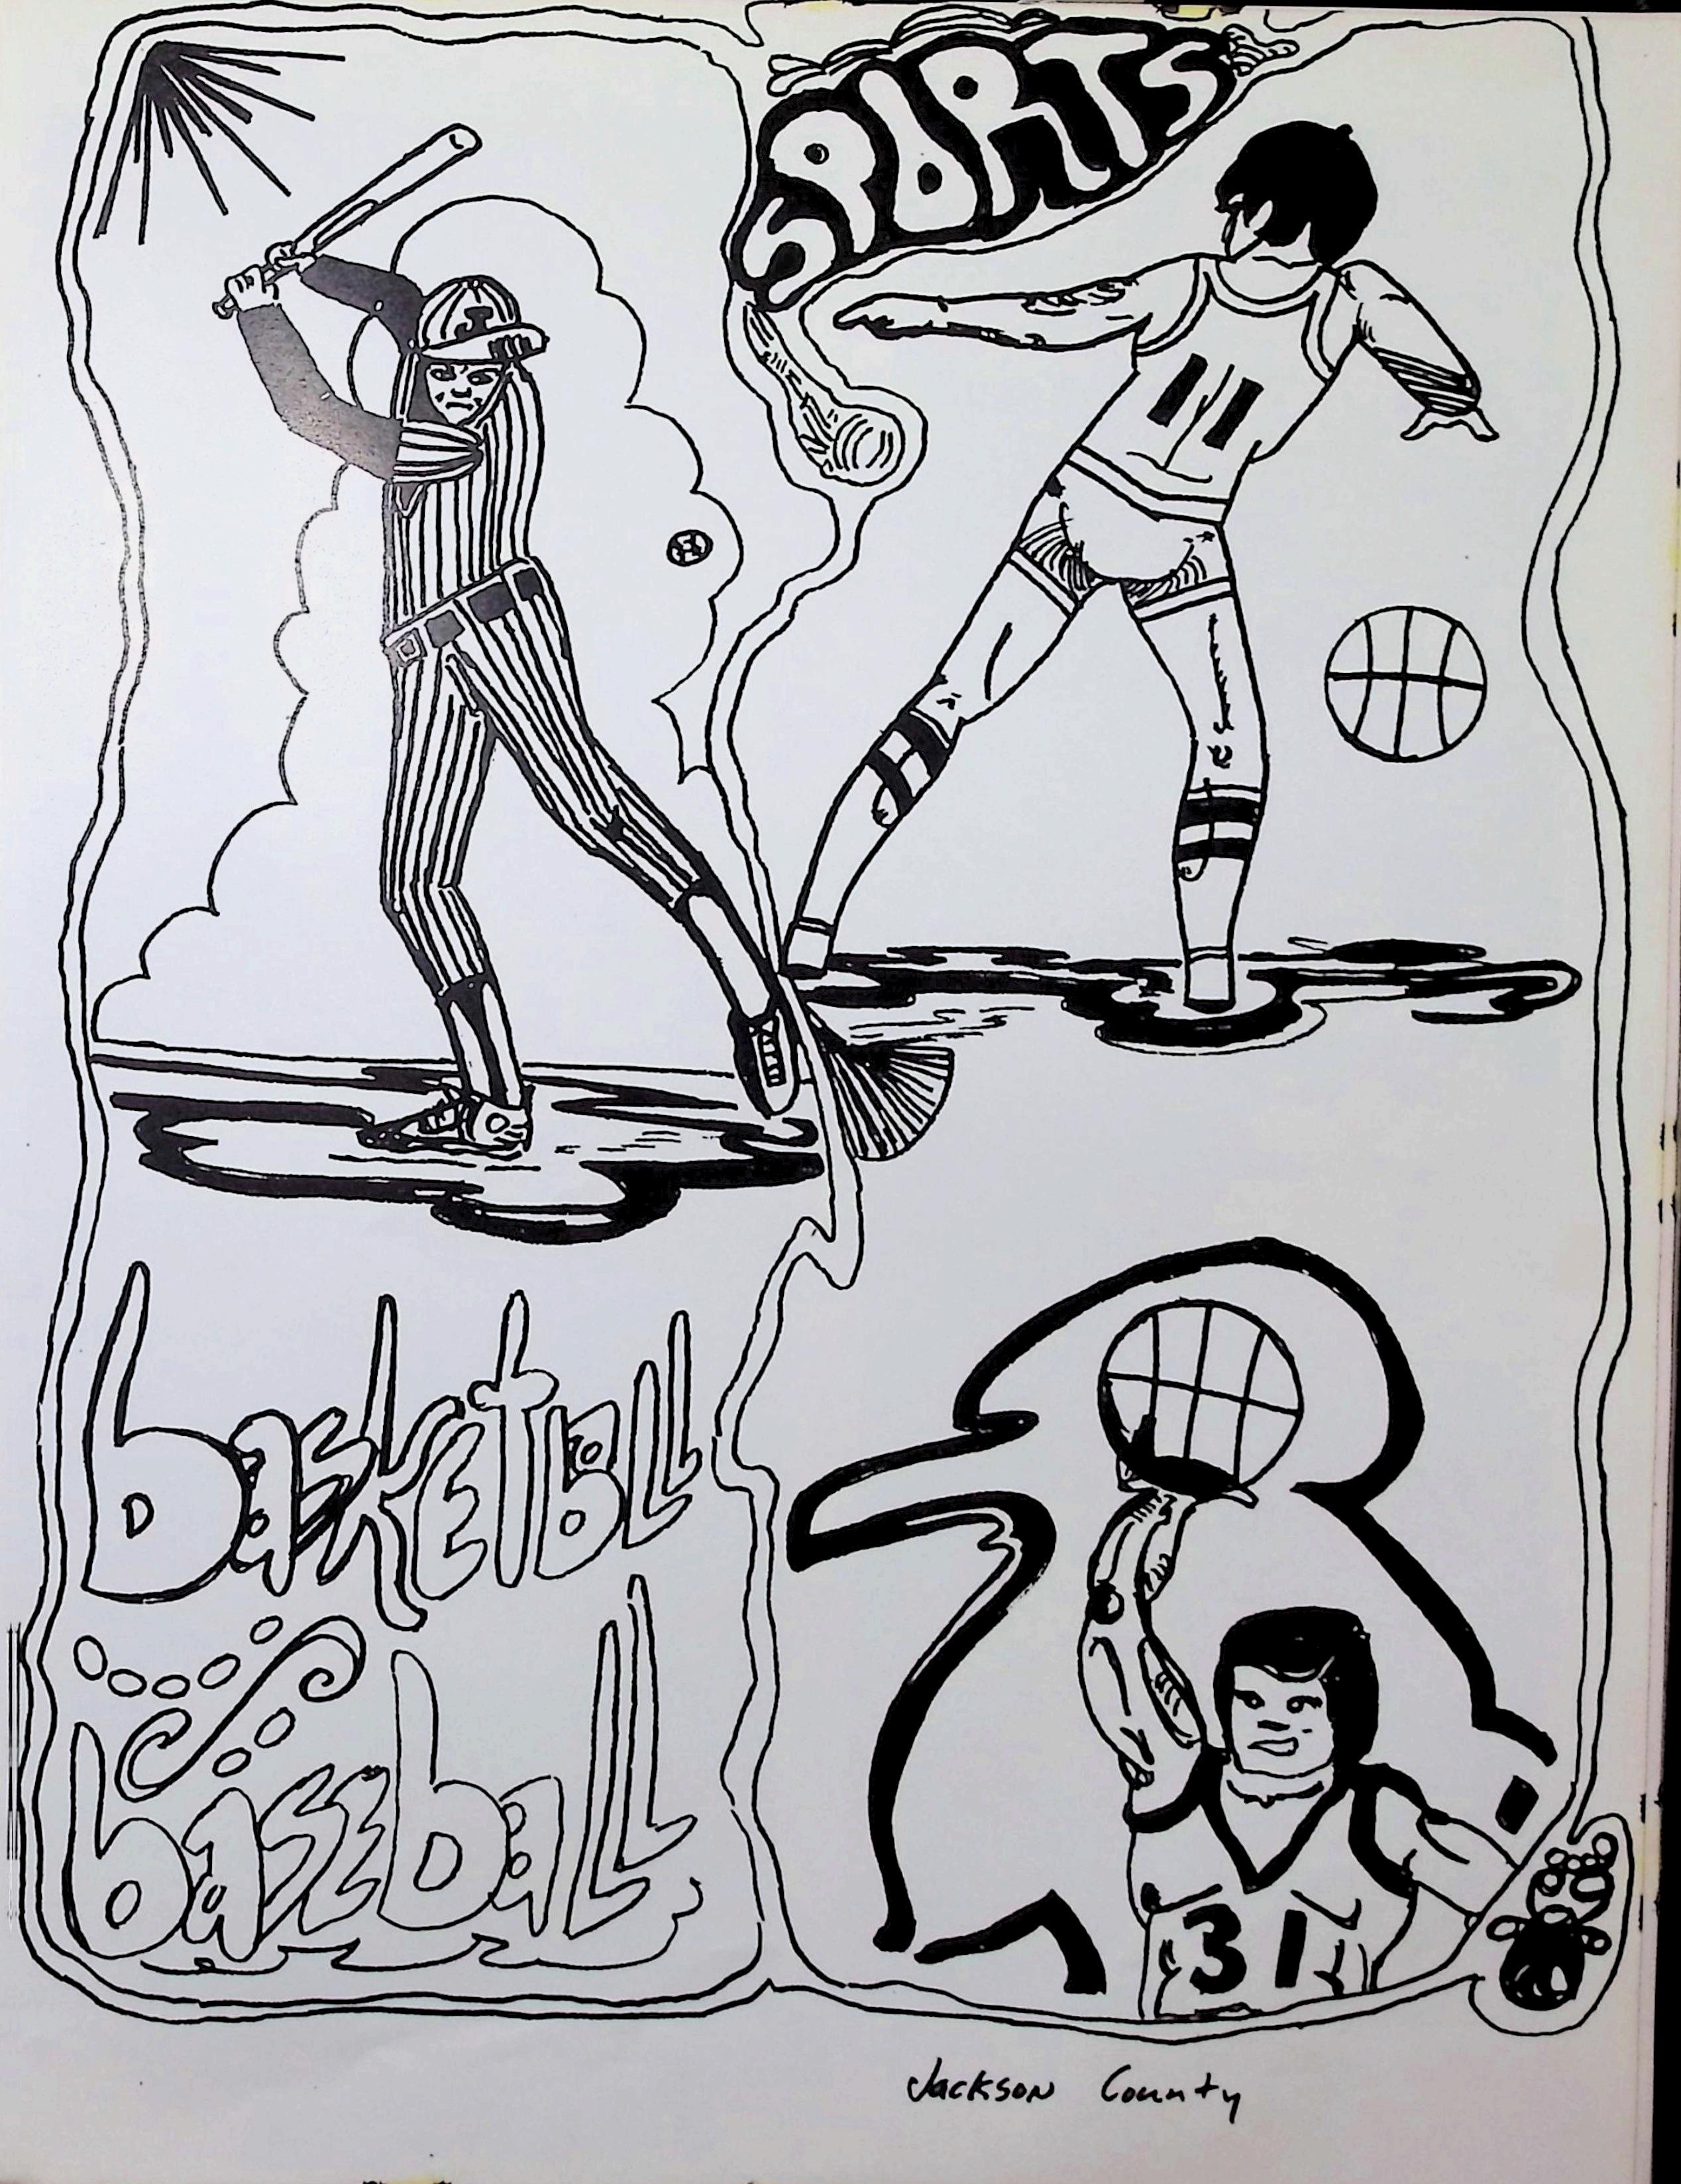 SPORTS
J
11
basketball
baseball
31
Jackson County